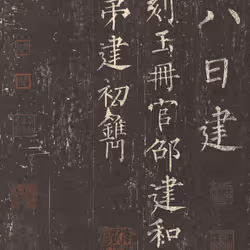 八日建
刻玉冊官邵建和
弟建初鐫